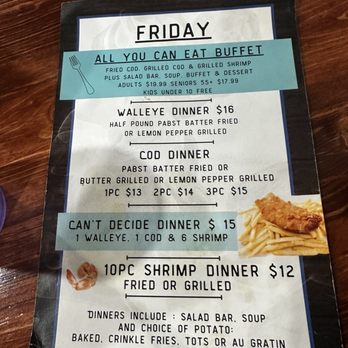 FRIDAY
ALL YOU CAN EAT BUFFET
FRIED COD, GRILLED COD & GRILLED SHRIMP
PLUS SALAD BAR, SOUP, BUFFET & DESSERT
ADULTS $19.99 SENIORS 55+ $17.99
KIDS UNDER 10 FREE
WALLEYE DINNER $16
HALF POUND PABST BATTER FRIED
OR LEMON PEPPER GRILLED
COD DINNER
PABST BATTER FRIED OR
BUTTER GRILLED OR LEMON PEPPER GRILLED
1PC $13 2PC $14 3PC $15
CAN'T DECIDE DINNER $ 15
1 WALLEYE, 1 COD & 6 SHRIMP
10PC SHRIMP DINNER $12
FRIED OR GRILLED
DINNERS INCLUDE : SALAD BAR, SOUP
AND CHOICE OF POTATO:
BAKED, CRINKLE FRIES, TOTS OR AU GRATIN